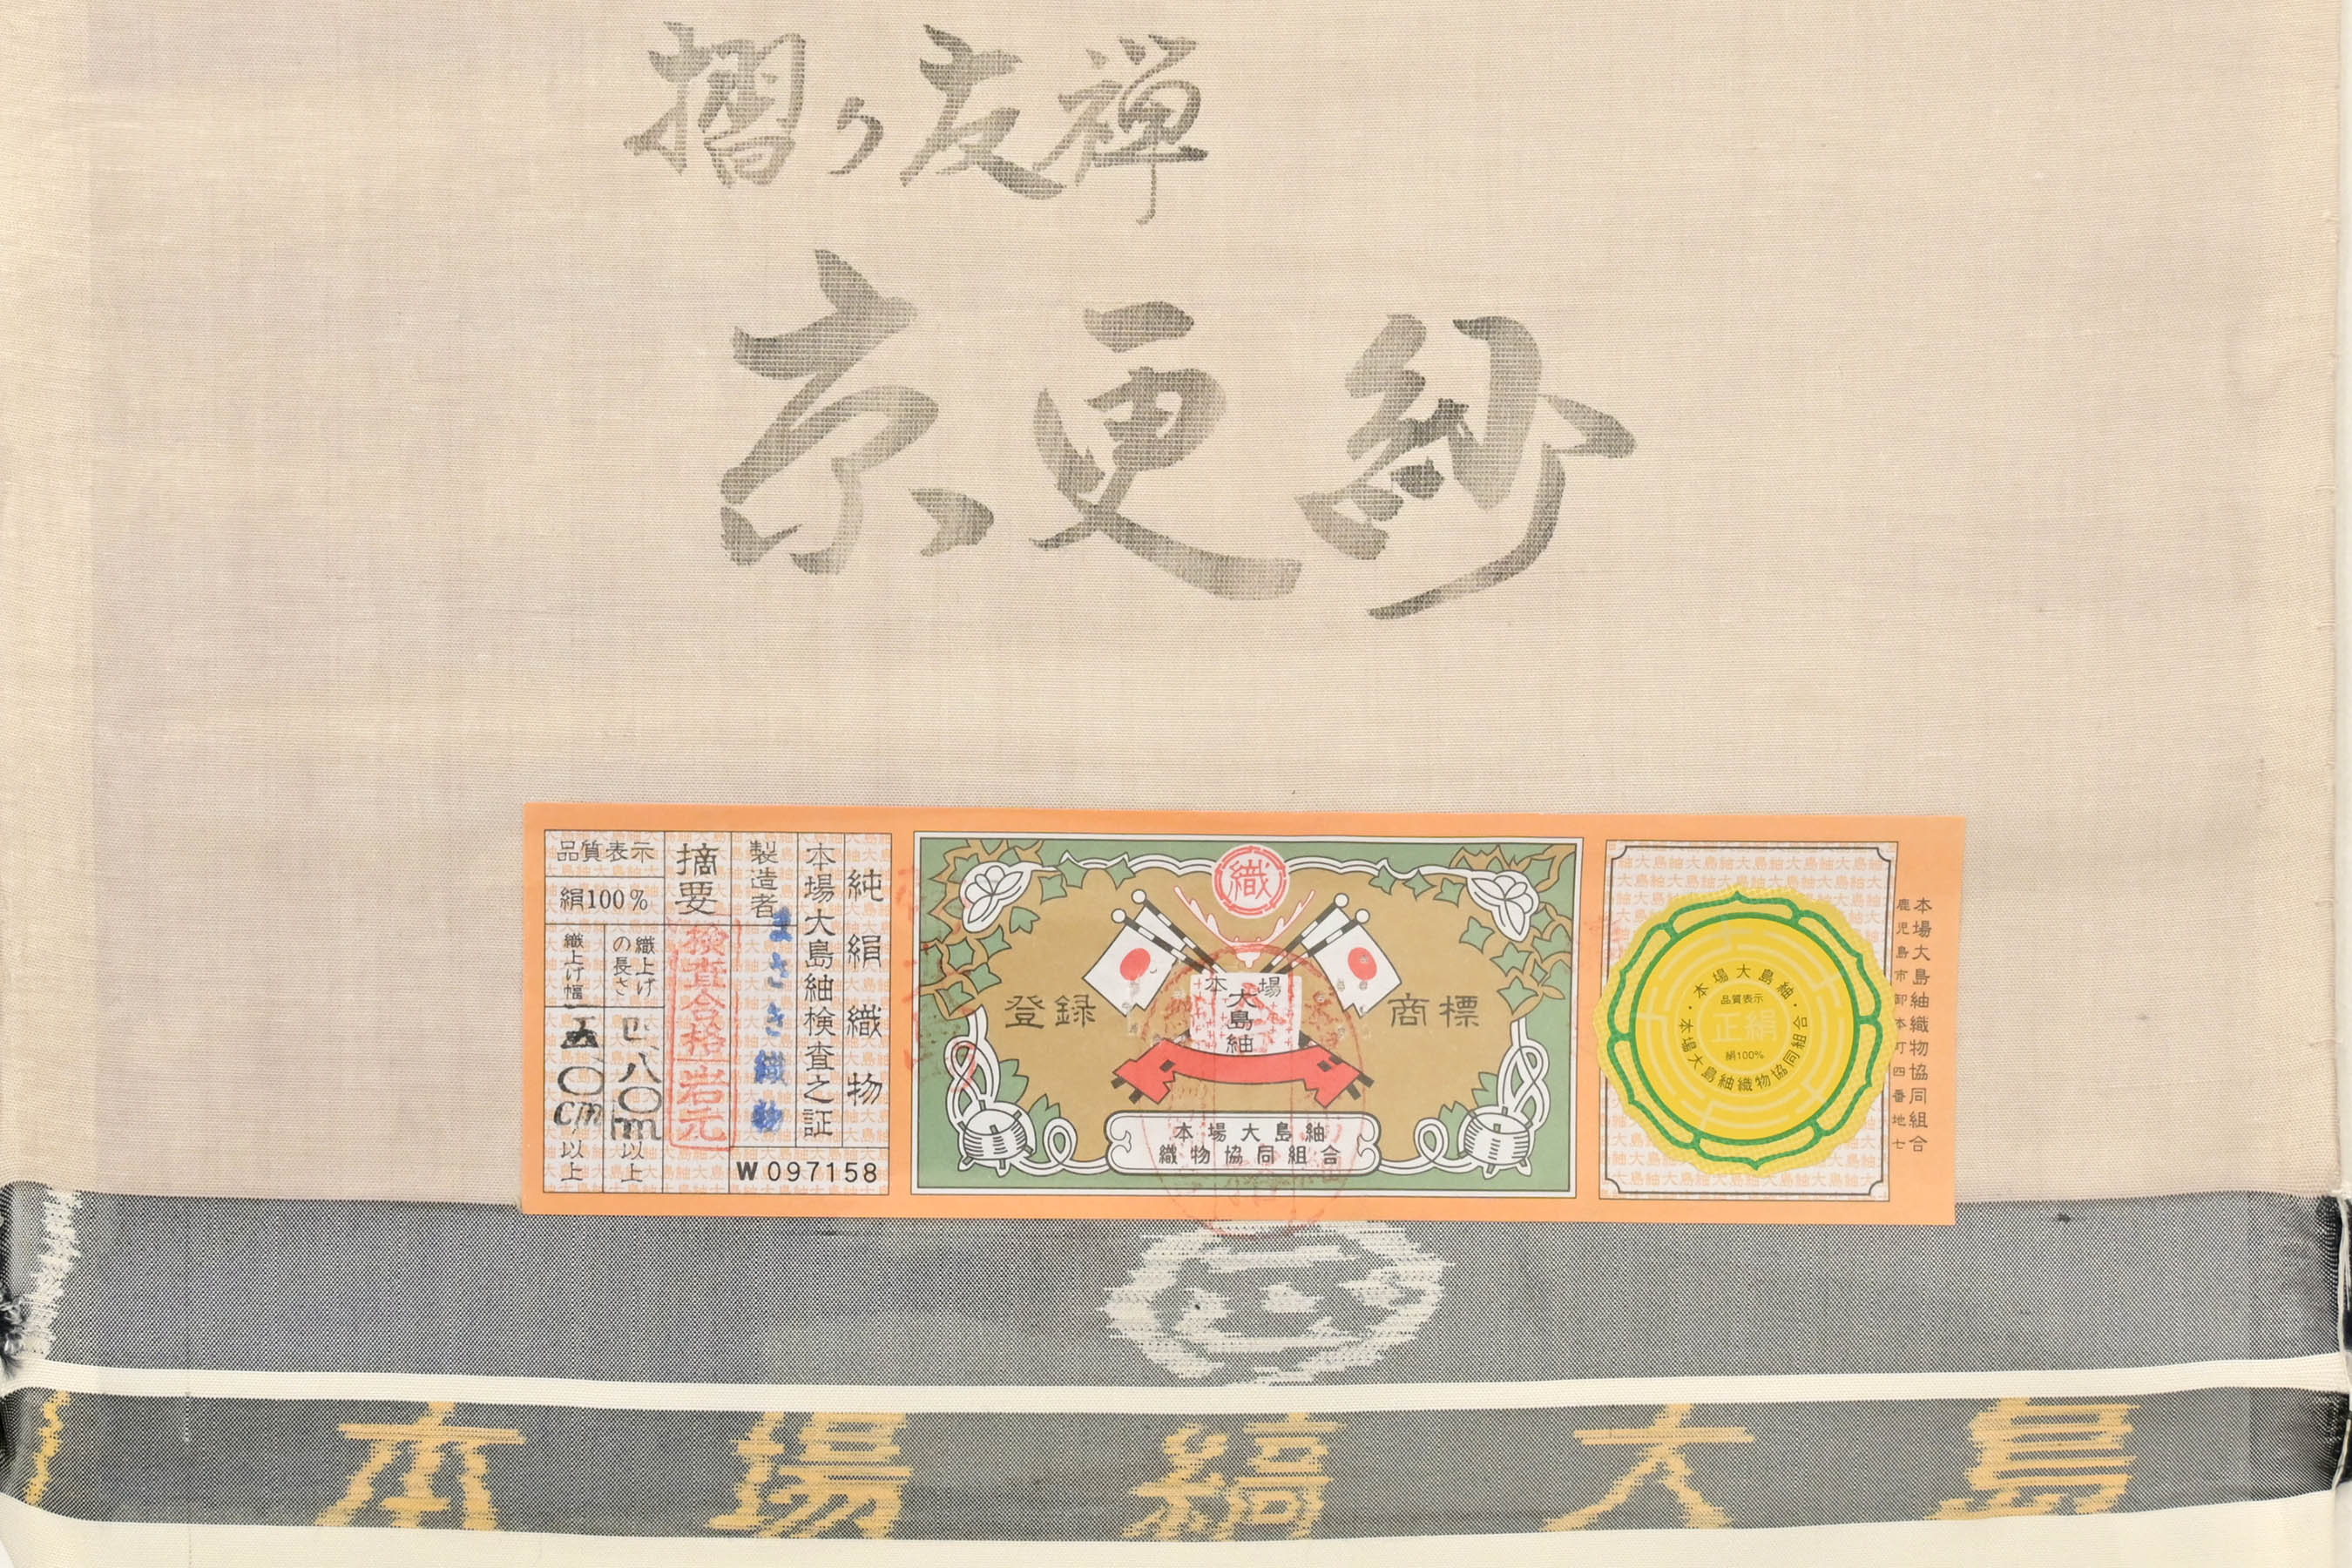 摺り友禅
京更紗
純絹織物
本場大島紬検査之証
製造者
まさき織紗
摘要
検査合格
岩元
品質表示
絹100%
織上げの長さ
四、八〇m以上
織上げ幅
五〇cm以上
W097158
織
登録
商標
本場
大島紬
本場大島紬
織物協同組合
・本場大島紬・
品質表示
正絹
絹100%
本場大島紬織物協同組合
本場大島紬織物協同組合
鹿児島市卸本町四番地七
本場縞大島